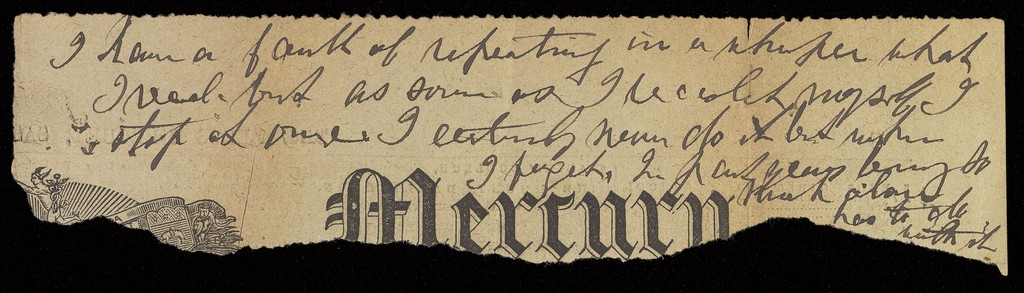 I have a fault of repeating in a whisper what
I read - but as soon as I recollect myself I
stop at once. I certainly never do it but when
I forget. In past years being so
much alone
has to do
with it
Mercury